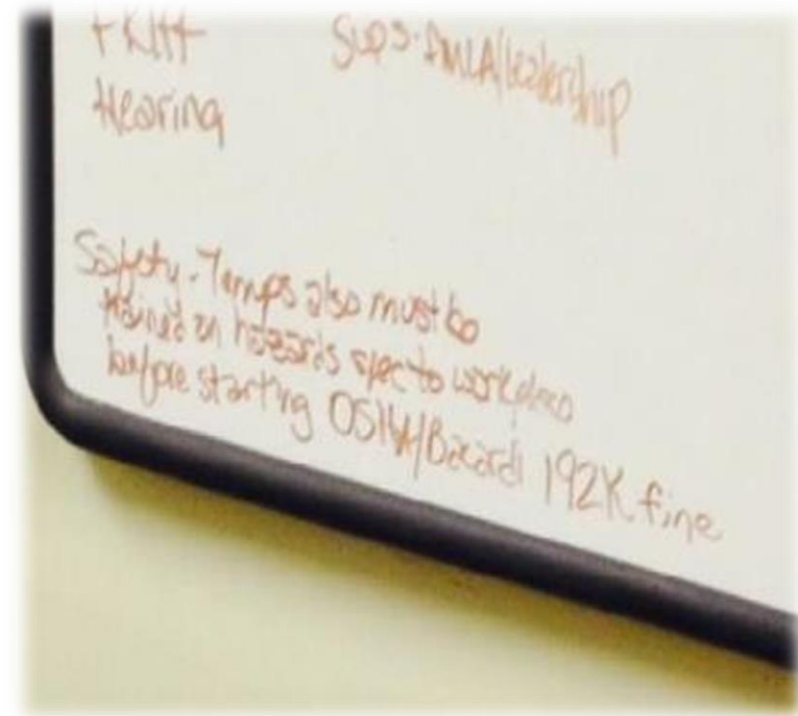 Sups-FMLA/leadership
Hearing
Safety-Temps also must be
trained on hazards spec to workplace
before starting OSHA/Bacardi 192K fine